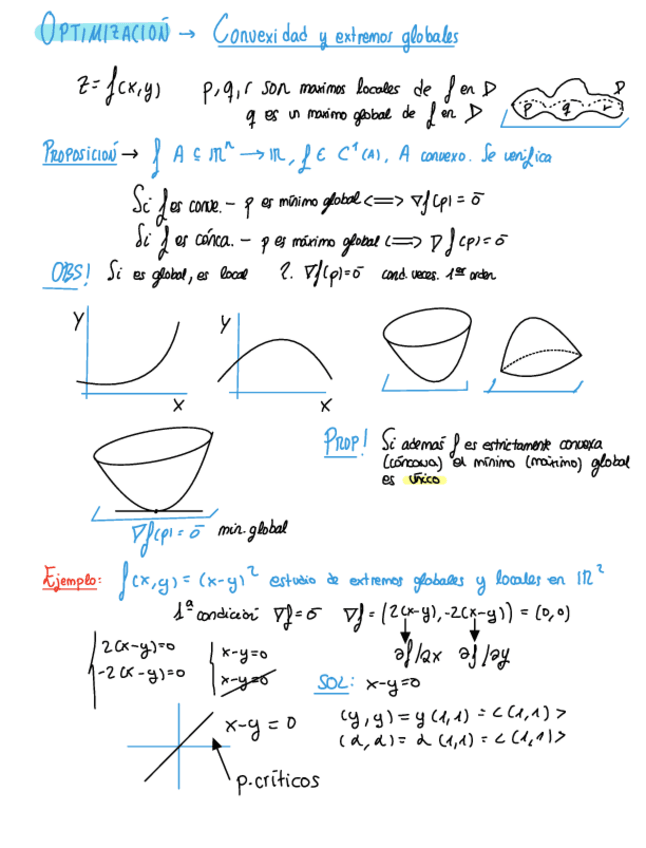 OPTIMIZACIÓN → Convexidad y extremos globales
z = f(x,y) p, q, r son maximos locales de f en D
q es un maximo global de f en D
D
p q r
PROPOSICIÓN → f A ⊆ ℝⁿ → ℝ, f ∈ C¹(A), A convexo. Se verifica
Si f es conve. - p es mínimo global <=> ∇f(p) = ō
Si f es cónca. - p es máximo global <=> ∇f(p) = ō
OBS! Si es global, es local 2. ∇f(p)=ō cond. neces. 1er orden
Y Y
X X
PROP! Si además f es estrictamente convexa
(cóncava) el mínimo (máximo) global
es único
∇f(p) = ō min. global
Ejemplo: f(x,y) = (x-y)² estudio de extremos globales y locales en ℝ²
1ª condición ∇f=ō ∇f = (2(x-y), -2(x-y)) = (0,0)
2(x-y)=0 x-y=0 ∂f/∂x ∂f/∂y
-2(x-y)=0 x-y=0
SOL: x-y=0
x-y = 0
(y,y) = y(1,1) = <(1,1)>
(α,α) = α(1,1) = <(1,1)>
p.críticos